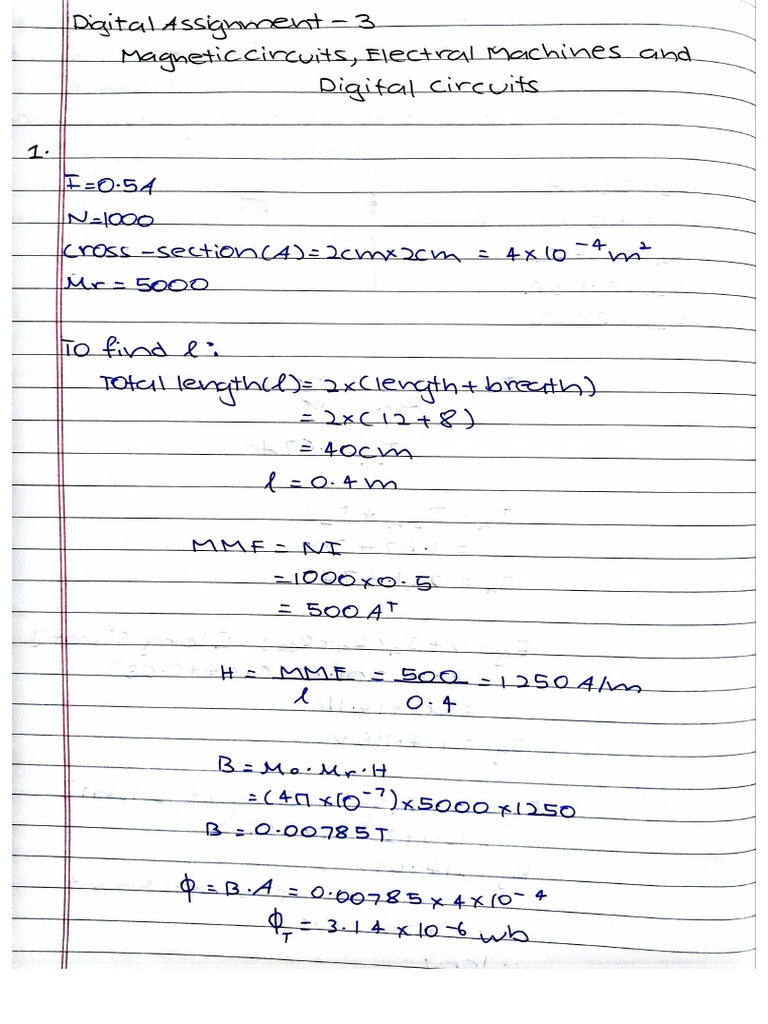 Digital Assignment - 3
Magnetic circuits, Electral Machines and
Digital circuits
1.
I=0.5A
N=1000
cross-section(A)=2cm×2cm = 4×10⁻⁴m²
μr = 5000
To find l:
Total length(l)= 2×(length+breath)
= 2×(12+8)
= 40cm
l = 0.4m
MMF = NI
=1000×0.5
= 500 AT
H = MMF/l = 500/0.4 = 1250 A/m
B = μ0.μr.H
=(4π×10⁻⁷)×5000×1250
B = 0.00785T
ϕ = B.A = 0.00785×4×10⁻⁴
ϕT = 3.14×10⁻⁶ wb